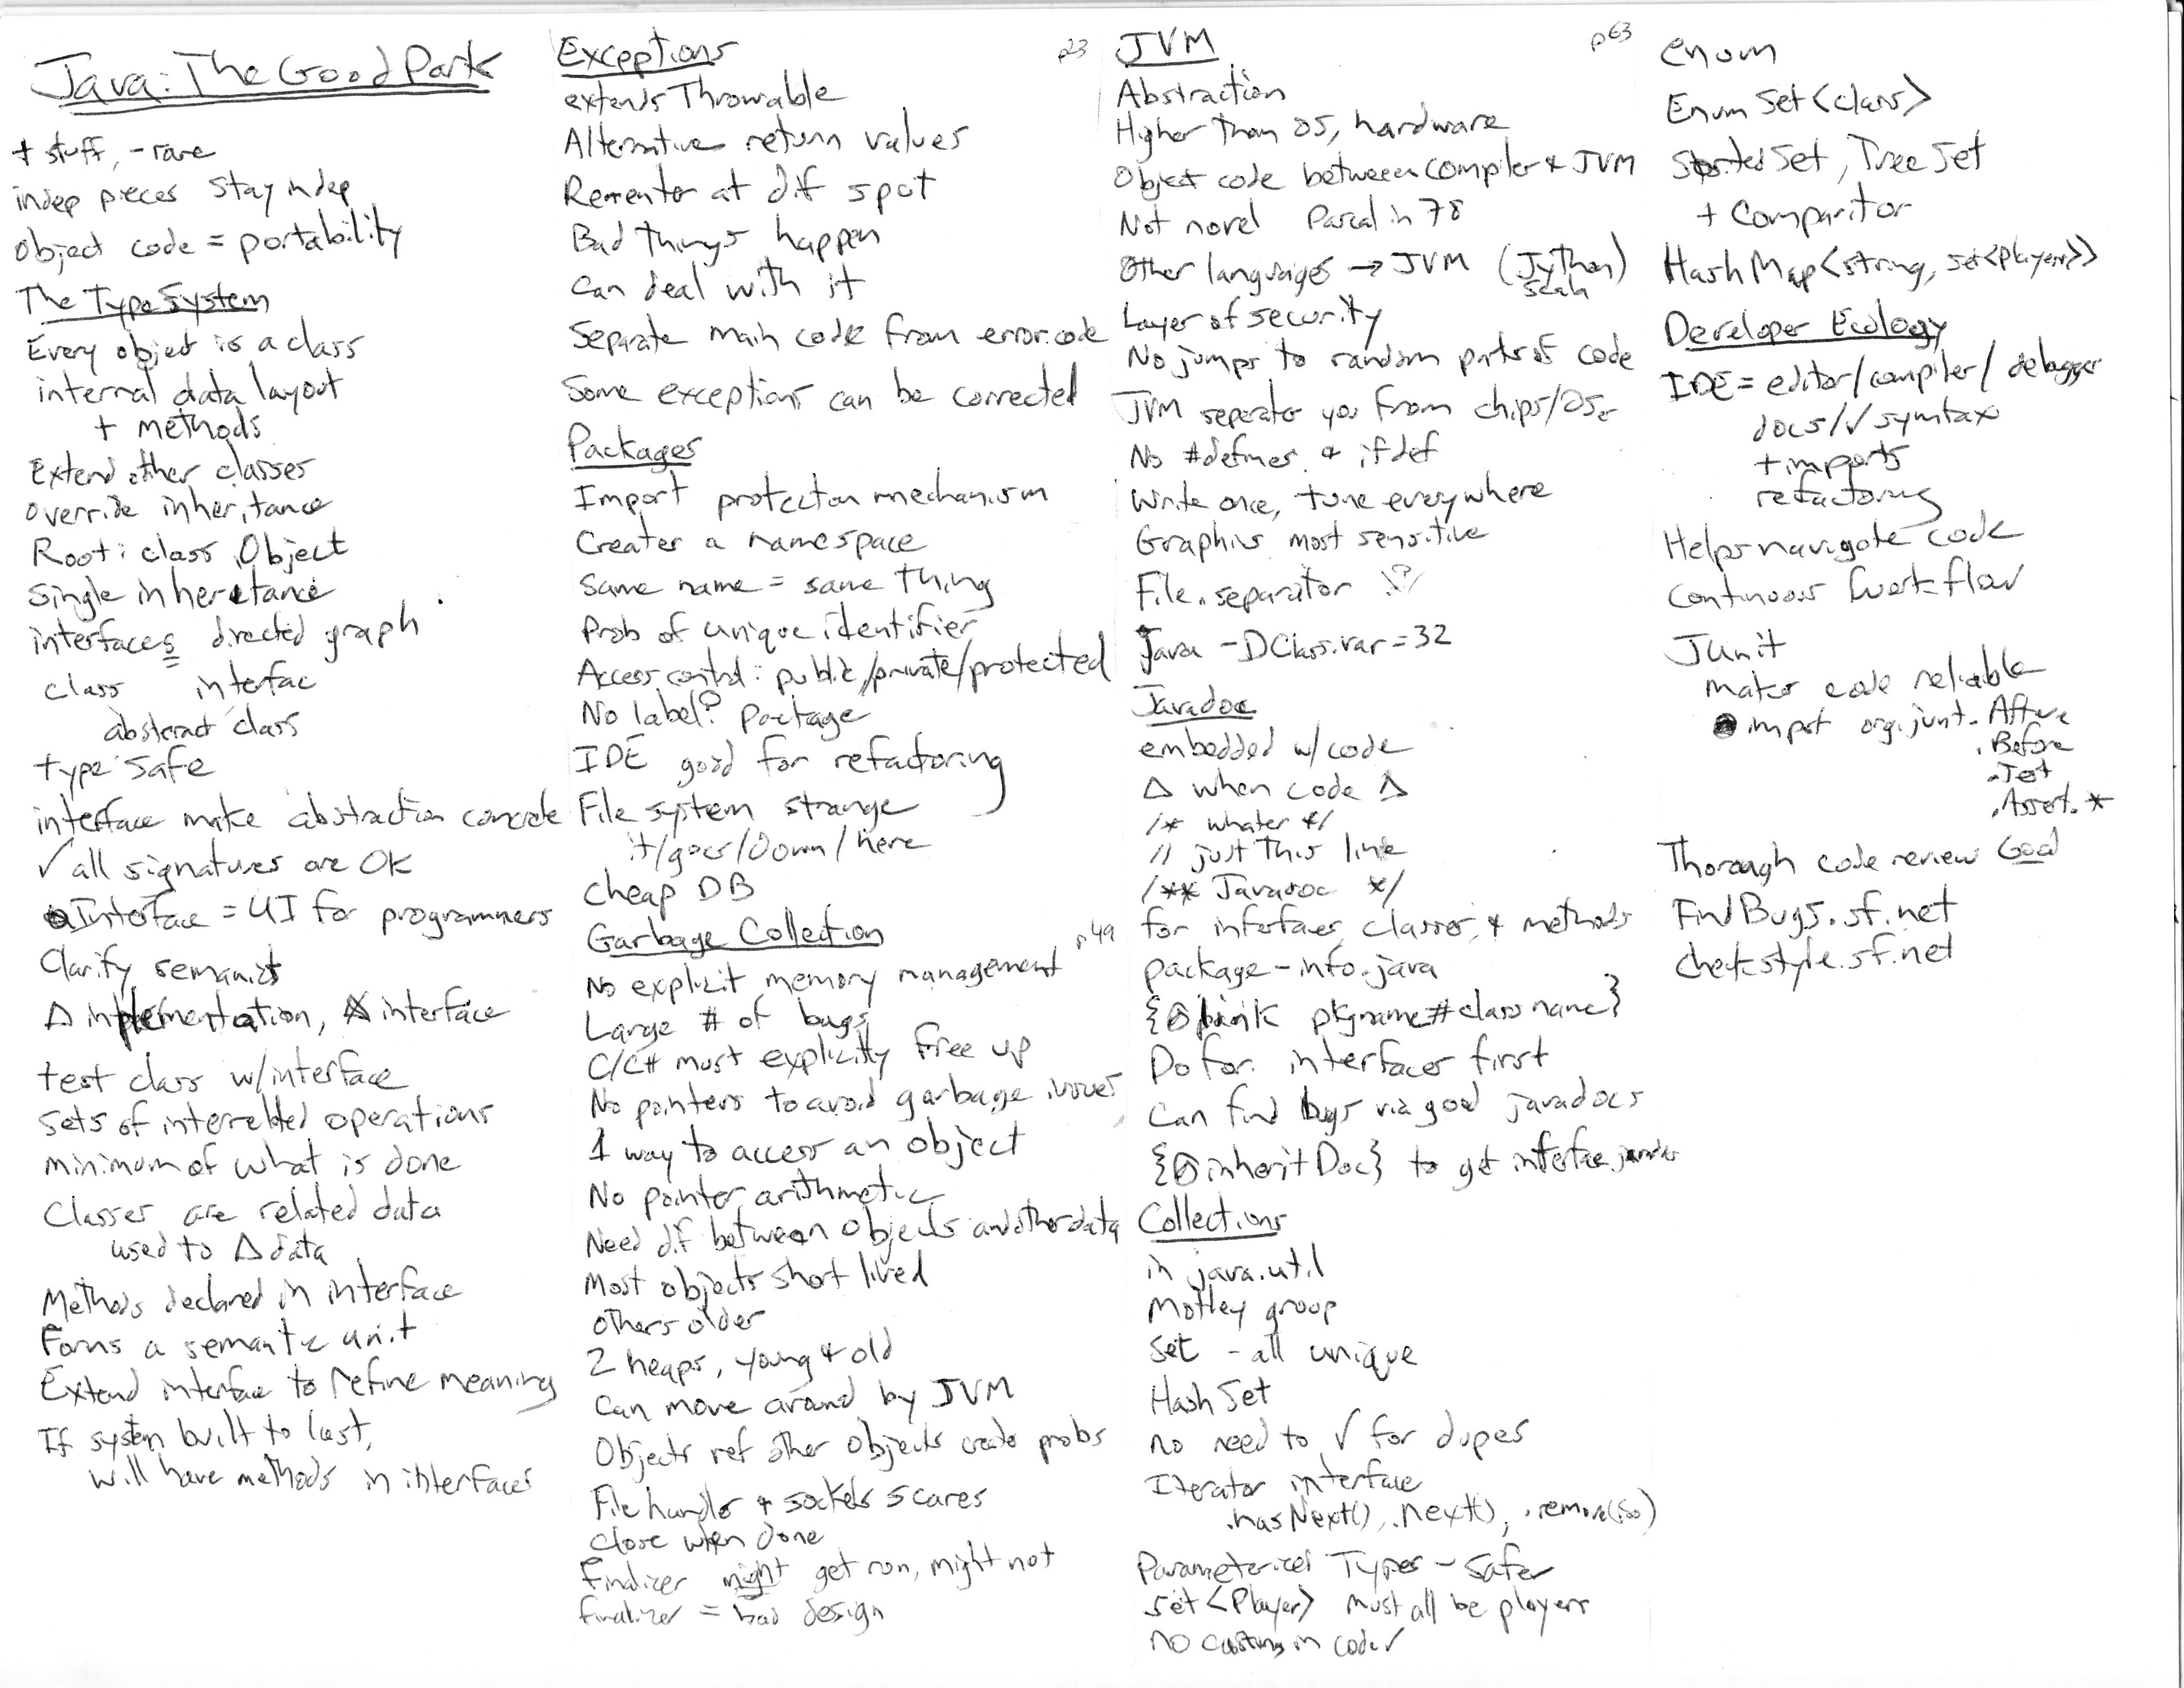 Java: The Good Parts
+ stuff, - rare
indep pieces stay indep
object code = portability
The Type System
Every object is a class
internal data layout
+ methods
Extend other classes
override inheritance
Root: class Object
Single inheretance
interfaces directed graph
class interfac
abstract class
type safe
interface make abstraction concrete
✓ all signatures are OK
Interface = UI for programmers
Clarify semantics
Δ implementation, Δ interface
test class w/interface
Sets of interrelated operations
minimum of what is done
Classes are related data
used to Δ data
Methods declared in interface
Forms a semantic unit
Extend interface to refine meaning
If system built to last,
will have methods in interfaces
Exceptions p23
extends Throwable
Alternative return values
Reenter at dif spot
Bad things happen
Can deal with it
Separate main code from error code
Some exceptions can be corrected
Packages
Import protection mechanism
Creates a namespace
Same name = same thing
Prob of unique identifier
Access control: public/private/protected
No label? package
IDE good for refactoring
File system strange
it/goes/Down/here
cheap DB
Garbage Collection p49
No explicit memory management
Large # of bugs
C/C# must explicitly free up
No pointers to avoid garbage issues
1 way to access an object
No pointer arithmetic
Need dif between objects and other data
Most objects short lived
others older
2 heaps, young + old
Can move around by JVM
Objects ref other objects create probs
File handles + sockets scares
close when done
Finalizer might get run, might not
finalizer = bad design
JVM p63
Abstraction
Higher than OS, hardware
Object code between compiler + JVM
Not novel Pascal in 78
Other languages → JVM (Jython)
Scala
Layer of security
No jumps to random parts of code
JVM seperates you from chips/OSes
No #defines + ifdef
Write once, tune everywhere
Graphics most sensitive
File.separator
Java -DClass.var=32
Javadoc
embedded w/code
Δ when code Δ
/* whatev */
// just this line
/** Javadoc */
for interfaces, classes, + methods
package-info.java
{@link pkgname#classname}
Do for interfaces first
Can find bugs via good javadocs
{@inheritDoc} to get interface javadocs
Collections
in java.util
Motley group
Set - all unique
HashSet
no need to ✓ for dupes
Iterator interface
.hasNext(), .next(), .remove(foo)
Parameterized Types - Safer
Set<Player> must all be players
no casting in code ✓
enum
Enum Set<class>
SortedSet, TreeSet
+ Comparitor
HashMap<string, set<player>>
Developer Ecology
IDE = editor/compiler/debugger
docs/✓ syntax
+ imports
refactoring
Helps navigate code
Continuous workflow
JUnit
makes code reliable
import org.junit.After
.Before
.Test
.Assert.*
Thorough code review Good
FindBugs.sf.net
checkstyle.sf.net